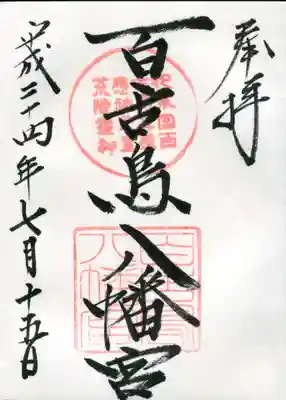 奉拝
百舌鳥八幡宮
平成二十四年七月十五日